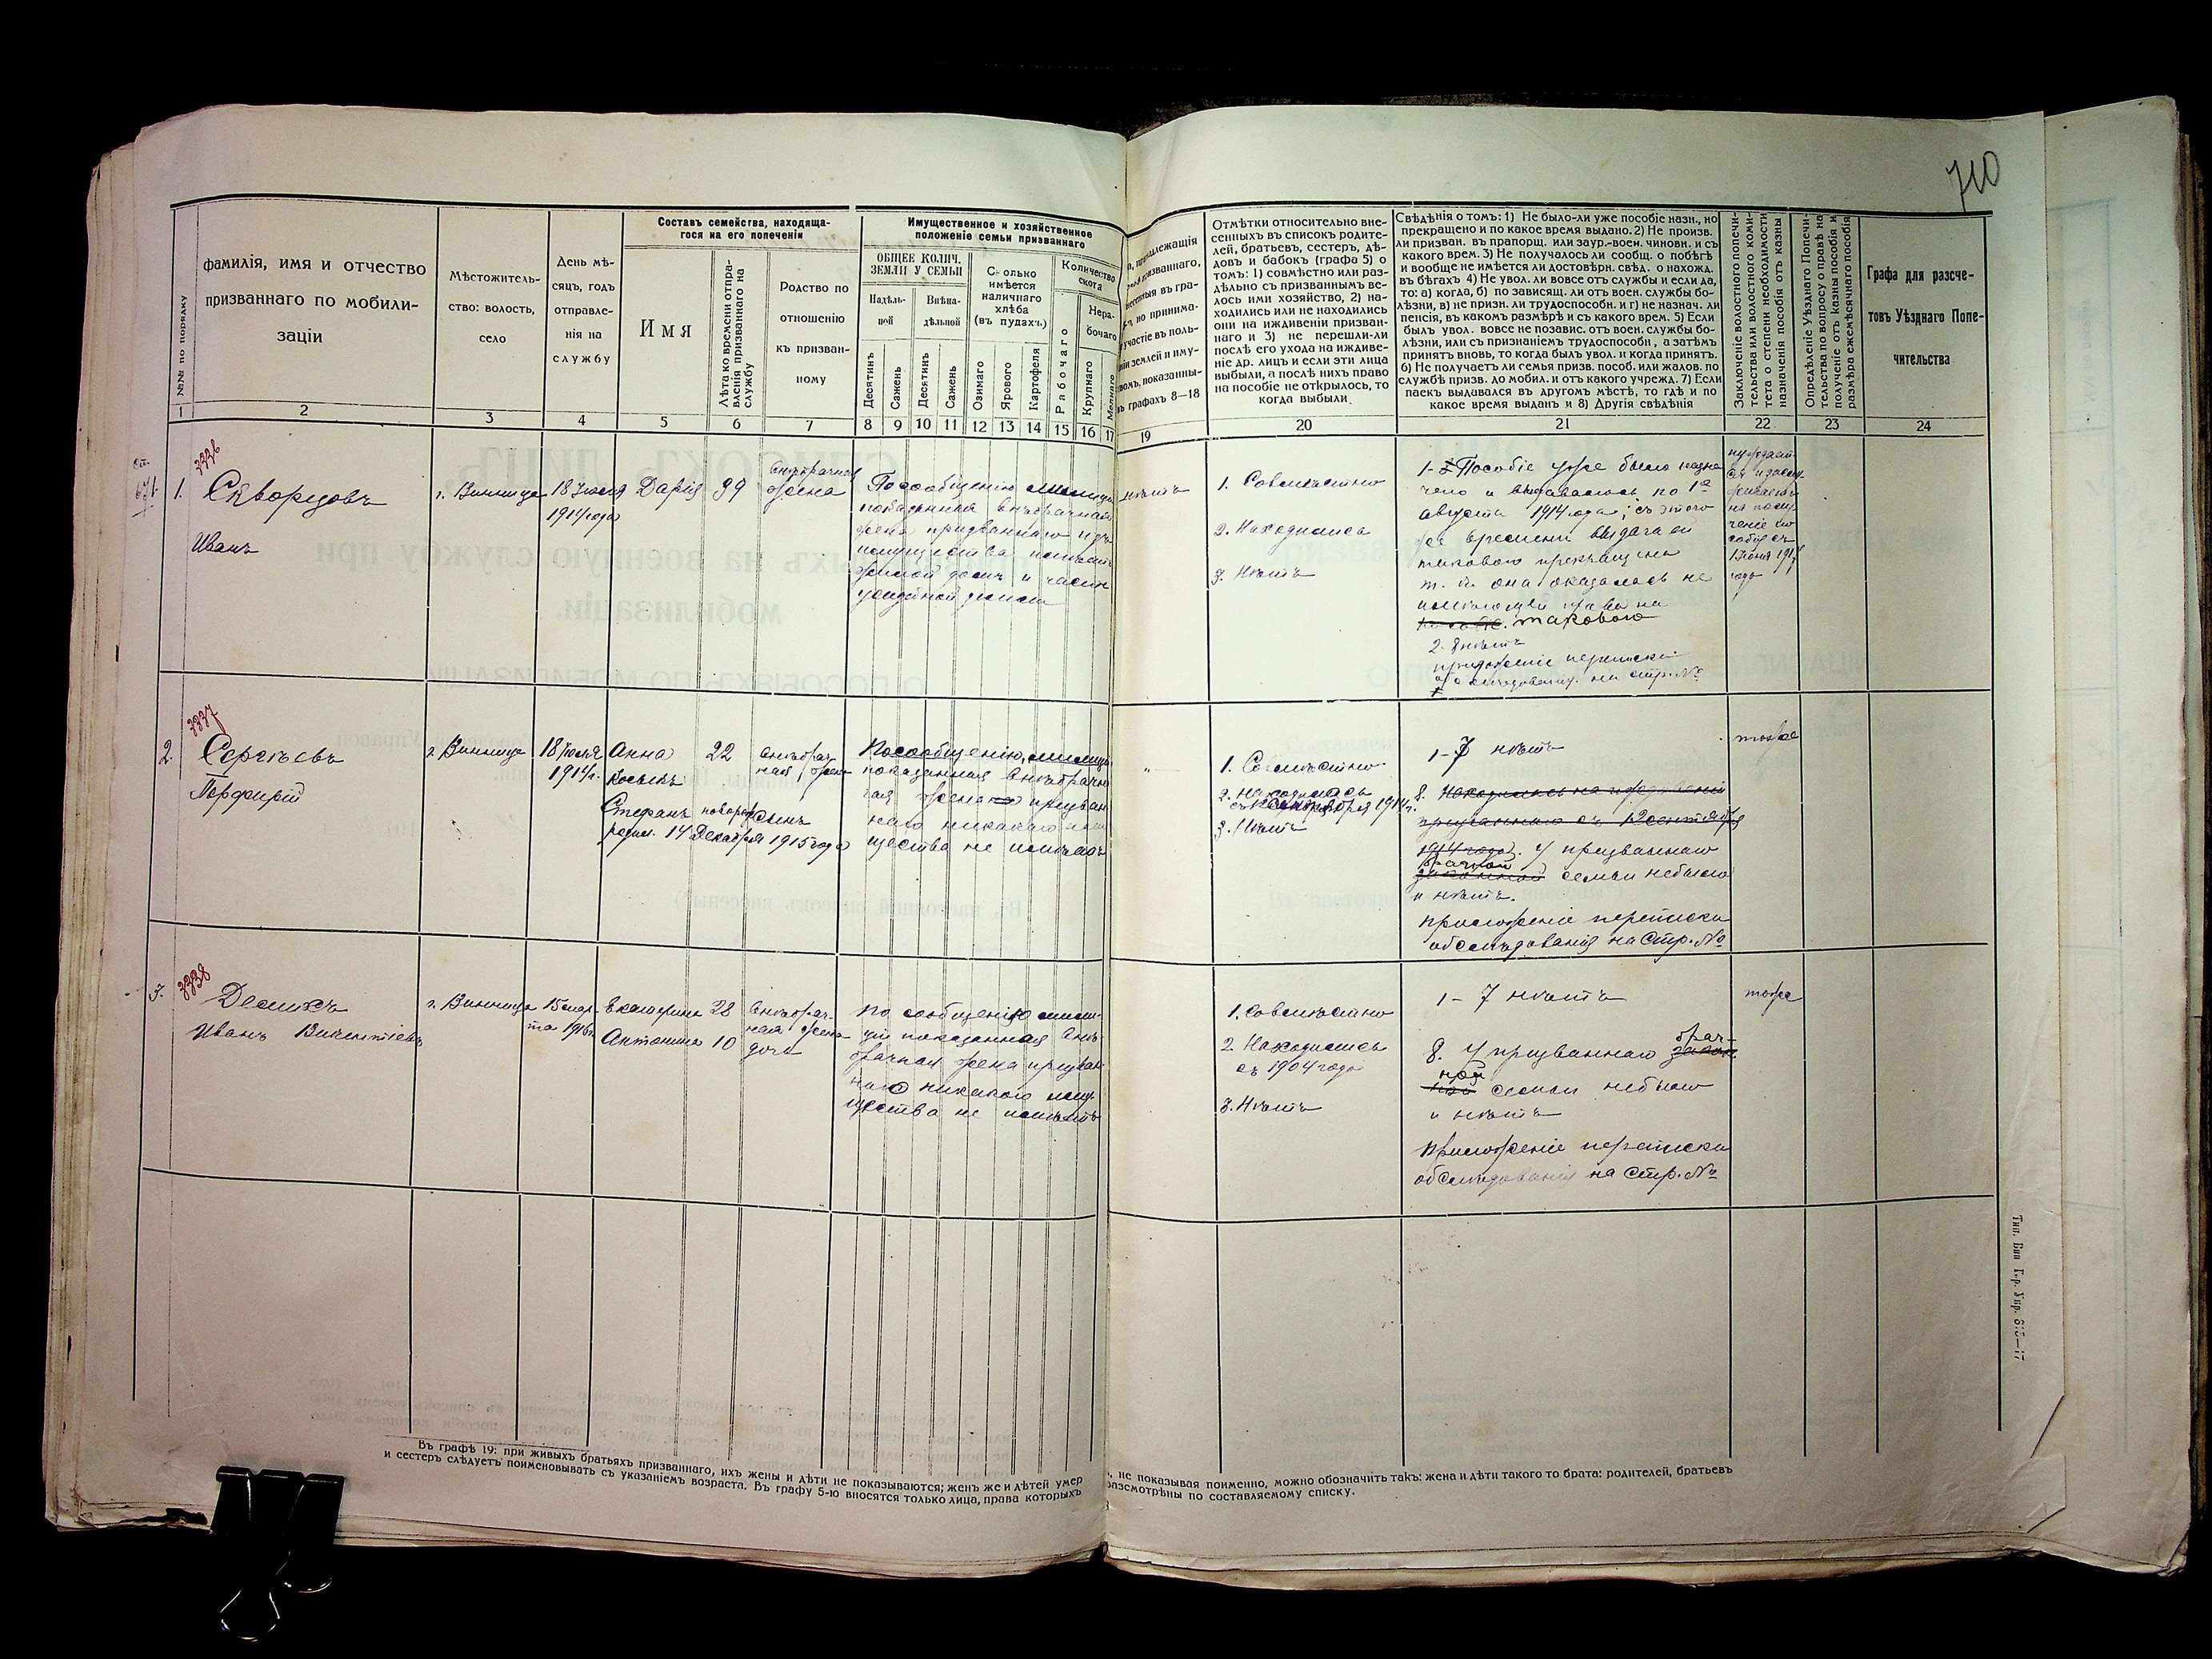 710
Составъ семейства, находяща-
гося на его попеченіи
Имущественное и хозяйственное
положеніе семьи призваннаго
№№ по порядку
фамилія, имя и отчество
призваннаго по мобили-
заціи
Мѣстожитель-
ство: волость,
село
День мѣ-
сяцъ, годъ
отправле-
нія на
службу
Имя
Лѣта ко времени отпра-
вленія призваннаго на
службу
Родство по
отношенію
къ призван-
ному
ОБЩЕЕ КОЛИЧ.
ЗЕМЛИ У СЕМЬИ
Надѣль-
ной
Внѣна-
дѣльной
Десятинъ
Сажень
Десятинъ
Сажень
Сколько
имѣется
наличнаго
хлѣба
(въ пудахъ)
Озимаго
Ярового
Картофеля
Количество
скота
Рабочаго
Нера-
бочаго
Крупнаго
Мелкаго
надлежащія
призваннаго,
въ гра-
но принима-
участіе въ поль-
землей и иму-
показанны-
въ графахъ 8—18
Отмѣтки относительно вне-
сенныхъ въ списокъ родите-
лей, братьевъ, сестеръ, дѣ-
довъ и бабокъ (графа 5) о
томъ: 1) совмѣстно или раз-
дѣльно съ призваннымъ ве-
лось ими хозяйство, 2) на-
ходились или не находились
они на иждивеніи призван-
наго и 3) не перешли-ли
послѣ его ухода на иждиве-
ніе др. лицъ и если эти лица
выбыли, а послѣ нихъ право
на пособіе не открылось, то
когда выбыли.
Свѣдѣнія о томъ: 1) Не было-ли уже пособіе назн., но
прекращено и по какое время выдано. 2) Не произв.
ли призван. въ прапорщ. или заур.-воен. чиновн. и съ
какого врем. 3) Не получалось ли сообщ. о побѣгѣ
и вообще не имѣется ли достовѣрн. свѣд. о нахожд.
въ бѣгахъ 4) Не увол. ли вовсе отъ службы и если да,
то: а) когда, б) по зависящ. ли отъ воен. службы бо-
лѣзни, в) не призн. ли трудоспособн. и г) не назнач. ли
пенсія, въ какомъ размѣрѣ и съ какого врем. 5) Если
былъ увол. вовсе не позавис. отъ воен. службы бо-
лѣзни, или съ признаніемъ трудоспособн, а затѣмъ
принятъ вновь, то когда былъ увол. и когда принятъ.
6) Не получаетъ ли семья призв. пособ. или жалов. по
службѣ призв. до мобил. и отъ какого учрежд. 7) Если
паекъ выдавался въ другомъ мѣстѣ, то гдѣ и по
какое время выданъ и 8) Другія свѣдѣнія
Заключеніе волостного попечи-
тельства или волостного коми-
тета о степени необходимости
назначенія пособія отъ казны
Опредѣленіе Уѣзднаго Попечи-
тельства по вопросу о правѣ на
полученіе отъ казны пособія и
размѣра ежемѣсячнаго пособія
Графа для разсче-
товъ Уѣзднаго Попе-
чительства
1 2 3 4 5 6 7 8 9 10 11 12 13 14 15 16 17 19 20 21 22 23 24
3336
1. Скворцовъ
Иванъ
г. Винница
18 Іюля
1914 года
Дарія
внѣбрачная
жена
По сообщенію милиціи
показанная внѣбрачная
жена призваннаго изъ
имущества имѣетъ
жилой домъ и часть
усадебной земли
нѣтъ
1. Совмѣстно
2. Находилась
3. Нѣтъ
Пособіе уже было назна
чено и выдавалось по 1е
августа 1914 года; съ этого
времени выдача ей
такового прекращена
т. к. она оказалась не
имѣющей права на
такового
2. 8 нѣтъ
нуждает
ся
1 Іюня 1917
года
3337
2. Сергѣевъ
Порфирій
г. Винница
18 Іюля
1914 г.
Анна
22
внѣбрач
ная жена
Стефанъ новорож сынъ
родил. 14 Декабря 1915 года
По сообщенію милиціи
показанная внѣбрач
ная жена призван
наго никакого иму
щества не имѣетъ
1. Совмѣстно
2. находилась
3. Нѣтъ
1-7 нѣтъ
8. Находилась на иждивеніи
призваннаго съ 12 сентября
1914 года. У призваннаго
брачной
законной семьи небыло
и нѣтъ.
приложеніе переписки
обслѣдованія на Стр. №
тоже
3338
3. Демихъ
Иванъ Викентіевъ
г. Винница
15 мар-
та 1916 г.
Екатерина 28
внѣбрач-
ная жена
Антонина 10
дочь
По сообщенію мили-
ціи показанная внѣ-
брачная жена призван
наго никакого иму
щества не имѣетъ
1. Совмѣстно
2. Находились
съ 1904 года
3. Нѣтъ
1-7 нѣтъ
брач-
8. У призваннаго закон
ной
ной семьи небыло
и нѣтъ
Приложеніе переписки
обслѣдованія на Стр. №
тоже
Въ графѣ 19: при живыхъ братьяхъ призваннаго, ихъ жены и дѣти не показываются; женъ же и дѣтей умер
не показывая поименно, можно обозначить такъ: жена и дѣти такого то брата: родителей, братьевъ
и сестеръ слѣдуетъ поименовывать съ указаніемъ возраста. Въ графу 5-ю вносятся только лица, права которыхъ
разсмотрѣны по составляемому списку.
Тип. Вин. Гор. Упр.